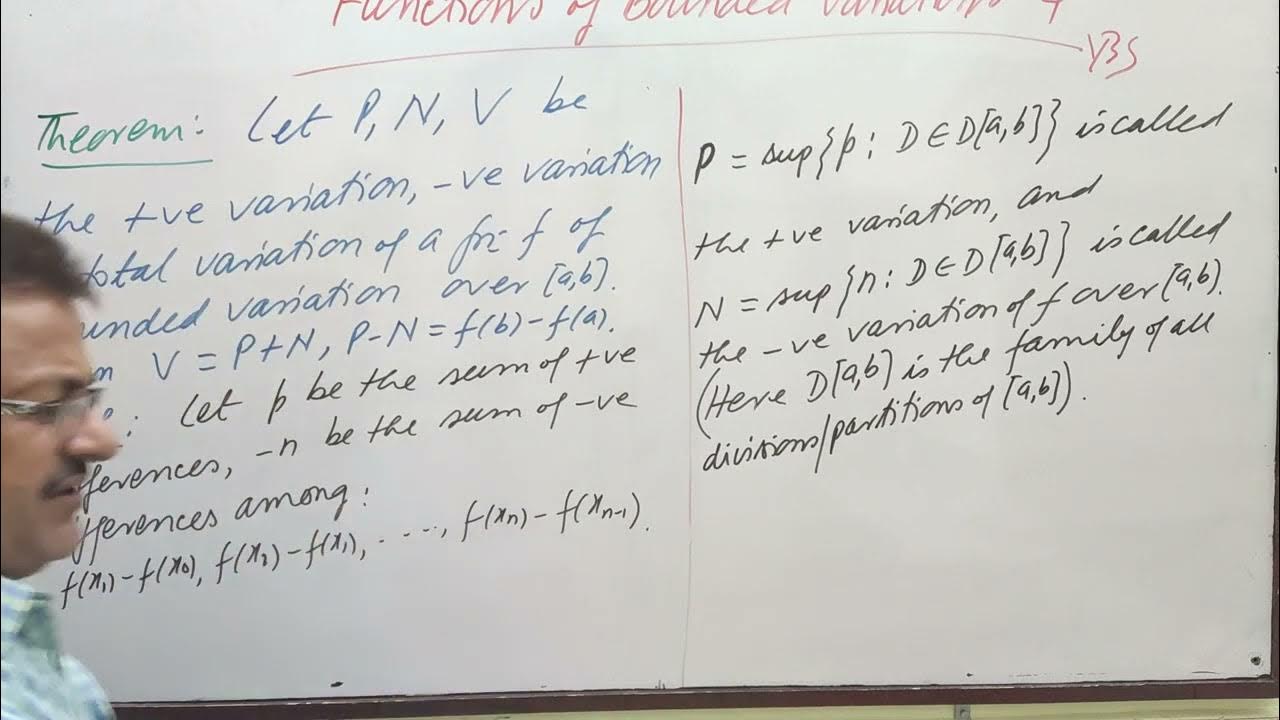 Functions of bounded variations 4
YBS
Theorem: Let P, N, V be
the +ve variation, -ve variation
total variation of a fn f of
unded variation over [a,b].
n V = P+N, P-N = f(b)-f(a).
: Let p be the sum of +ve
ferences, -n be the sum of -ve
fferences among:
f(x₁)-f(x₀), f(x₂)-f(x₁), ....., f(xn)-f(xn-1).
P = sup{p: D∈D[a,b]} is called
the +ve variation, and
N = sup{n: D∈D[a,b]} is called
the -ve variation of f over [a,b].
(Here D[a,b] is the family of all
divisions/partitions of [a,b]).